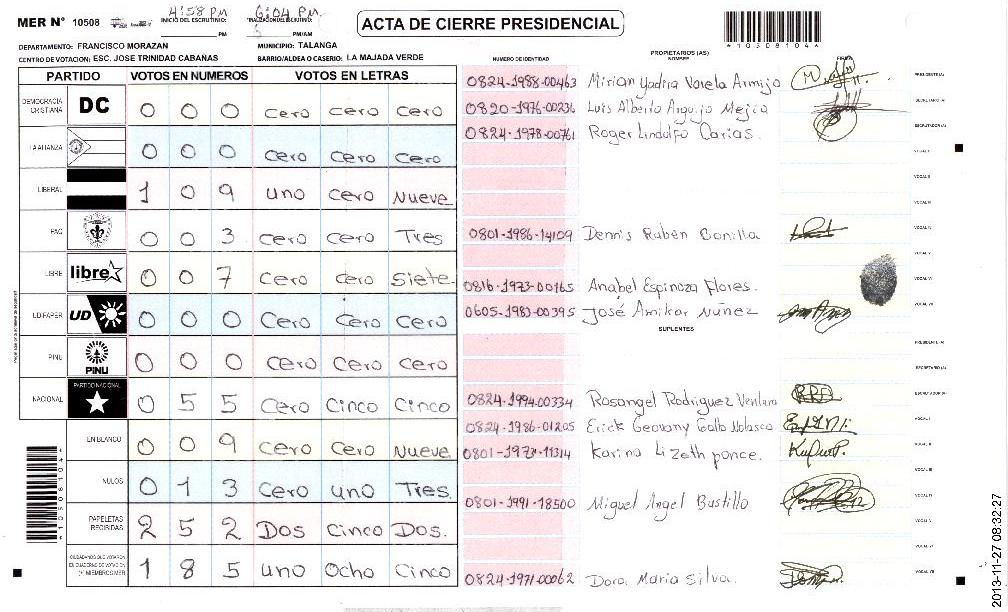 4:58 PM 6:04 PM
MER N° 10508 INICIO DEL ESCRUTINIO: PM PM/AM
ACTA DE CIERRE PRESIDENCIAL
*10508104*
DEPARTAMENTO: FRANCISCO MORAZAN MUNICIPIO: TALANGA
CENTRO DE VOTACION: ESC. JOSE TRINIDAD CABAÑAS BARRIO/ALDEA O CASERIO: LA MAJADA VERDE
NUMERO DE IDENTIDAD PROPIETARIOS (AS) NOMBRE FIRMA
PARTIDO VOTOS EN NUMEROS VOTOS EN LETRAS
DEMOCRACIA CRISTIANA DC 0 0 0 cero cero cero
LA ALIANZA 0 0 0 cero cero cero
LIBERAL 1 0 9 uno cero Nueve
PAC 0 0 3 cero cero Tres
LIBRE libre 0 0 7 cero cero Siete
UD/FAPER UD 0 0 0 Cero Cero Cero
PINU PINU 0 0 0 Cero Cero Cero
NACIONAL PARTIDO NACIONAL 0 5 5 Cero Cinco Cinco
EN BLANCO 0 0 9 Cero Cero Nueve
NULOS 0 1 3 Cero uno Tres.
PAPELETAS RECIBIDAS 2 5 2 Dos Cinco Dos.
CIUDADANOS QUE VOTARON EN CUADERNO DE VOTACION (+) MIEMBROS MER 1 8 5 uno Ocho Cinco
0824-1988-00463 Mirian Yadira Varela Armijo PRESIDENTE (A)
0820-1976-00236 Luis Alberto Mejia SECRETARIO (A)
0824-1978-00761 Roger Lindolfo Carias. ESCRUTADOR (A)
VOCAL I
VOCAL II
VOCAL III
0801-1986-14109 Dennis Ruben Bonilla VOCAL IV
VOCAL V
0816-1973-00165 Anabel Espinoza Flores. VOCAL VI
0605-1983-00395 José Amilkar Nuñez VOCAL VII
SUPLENTES
PRESIDENTE (A)
SECRETARIO (A)
0824-1994-00334 Rosangel Rodriguez Ventura ESCRUTADOR (A)
0824-1986-01205 Erick Geovany Gallo Nolasco VOCAL I
0801-1973-11314 Karina Lizeth ponce. VOCAL II
VOCAL III
0801-1991-18500 Miguel Angel Bustillo VOCAL IV
VOCAL V
VOCAL VI
0824-1971-00062 Dora Maria Silva. VOCAL VII
*10508104*
2013-11-27 08:32:27